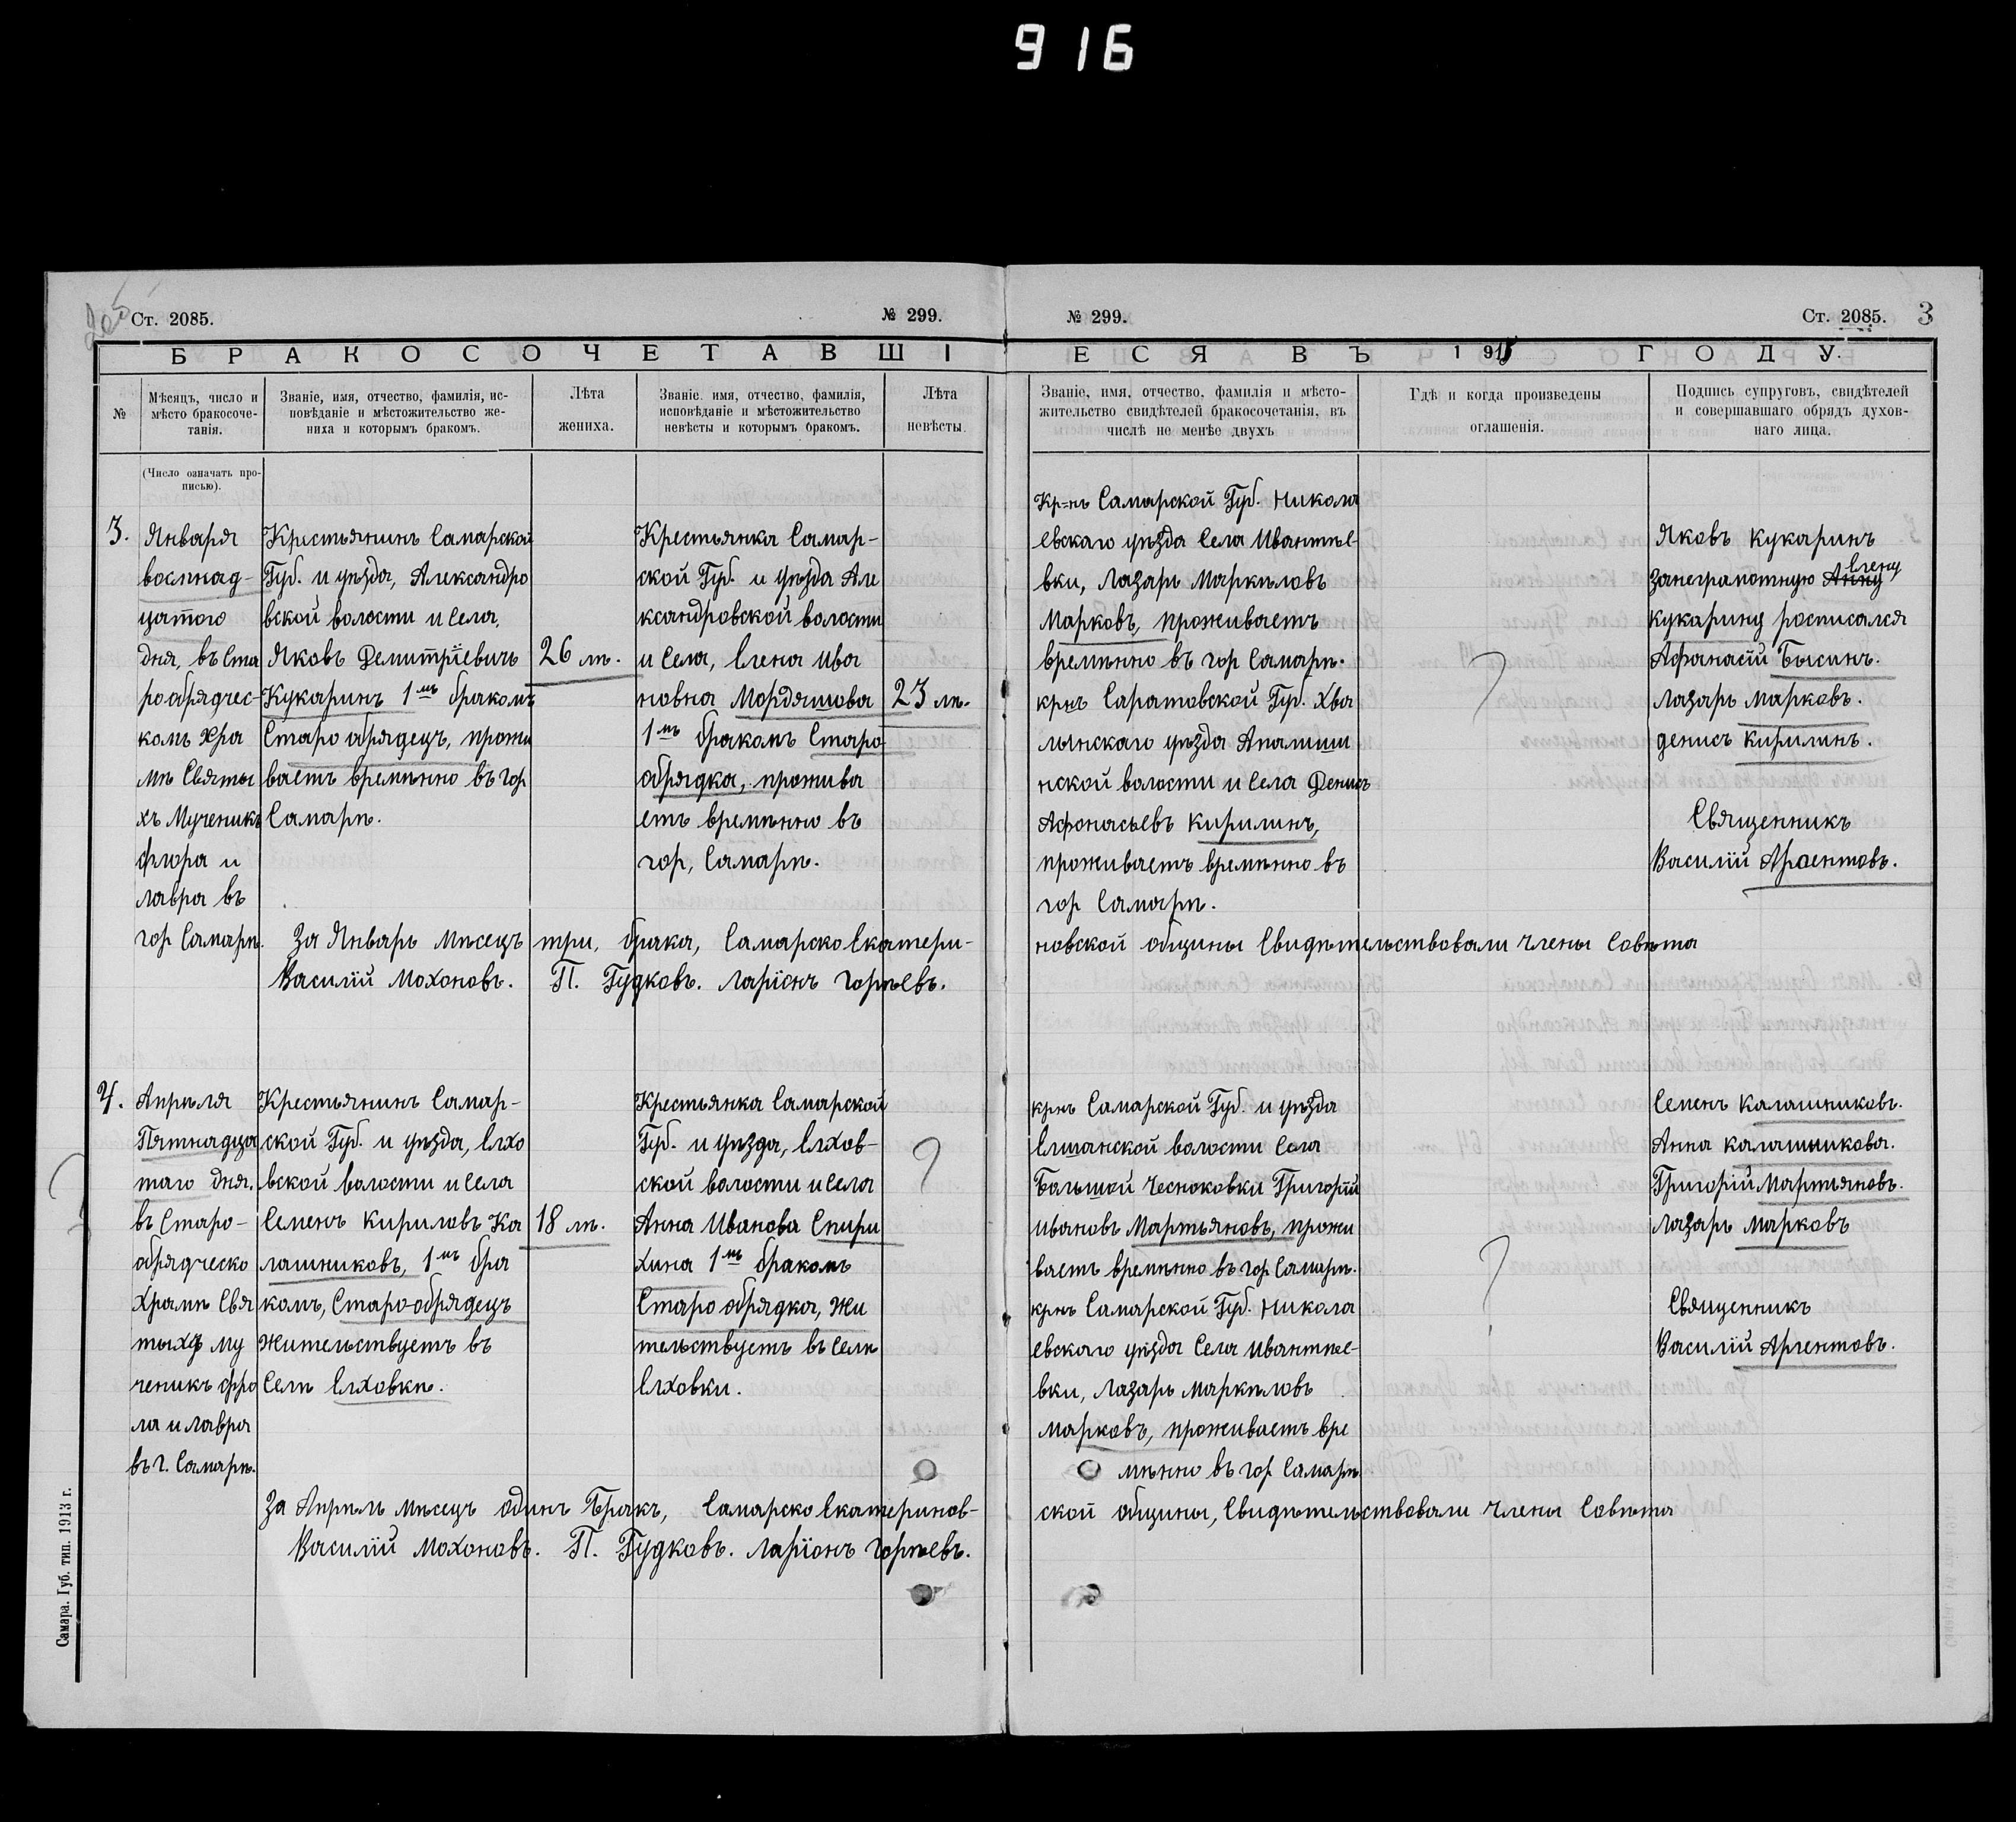 916
Ст. 2085.
№ 299.
№ 299.
Ст. 2085.
3
БРАКОСОЧЕТАВШІ
ЕСЯ ВЪ 1915 ГОДУ.
№
Мѣсяцъ, число и
мѣсто бракосоче-
танія.
Званіе, имя, отчество, фамилія, ис-
повѣданіе и мѣстожительство же-
ниха и которымъ бракомъ.
Лѣта
жениха.
Званіе. имя, отчество, фамилія,
исповѣданіе и мѣстожительство
невѣсты и которымъ бракомъ.
Лѣта
невѣсты.
Званіе, имя, отчество, фамилія и мѣсто-
жительство свидѣтелей бракосочетанія, въ
числѣ не менѣе двухъ
Гдѣ и когда произведены
оглашенія.
Подпись супруговъ, свидѣтелей
и совершавшаго обрядъ духов-
наго лица.
(Число означать про-
писью).
3.
Января
восмнад-
цатого
дня, въ Ста
рообрядчес-
комъ Хра
мѣ Святы
хъ Мученикъ
Флора и
Лавра въ
гор Самарѣ.
Крестьянинъ Самарской
Губ. и уѣзда, Александро
вской волости и села,
Яковъ Демитріевичъ
Кукаринъ 1мъ бракомъ
Старо обрядецъ, прожи
ваетъ времѣнно въ гор
Самарѣ.
26 лѣ.
Крестьянка Самар-
ской Губ. и уѣзда Але
ксандровской волости
и Села, Елена Ива
новна Мордяшова
1мъ бракомъ Старо
обрядка, прожива
етъ времѣнно въ
гор, Самарѣ.
23 лѣ.
Кр=нъ Самарской Губ. Никола
евскаго уѣзда Села Ивантѣе-
вки, Лазарь Маркѣловъ
Марковъ, проживаетъ
времѣнно въ гор Самарѣ.
крнъ Саратовской Губ. Хва
лынскаго уѣзда Апалиши
нской волости и села Денисъ
Афонасьевъ Кирилинъ,
проживаетъ времѣнно въ
гор Самарѣ.
?
Яковъ Кукаринъ
занеграмотную Анну Елену
Кукарину росписался
Афанасій Бысинъ.
Лазарь Марковъ.
Денисъ Кирилинъ.
Священникъ
Василій Аргентовъ.
За Январь мѣсецъ три, брака, Самарско Екатери-
новской общины Свидѣтельствовали члены Совѣта
Василій Мохоновъ. П. Гудковъ. Ларіонъ Горѣевъ.
4.
Апрѣля
Пятнадца
таго дня.
въ Старо-
обрядческо
Храмѣ Свя
тыхъ му
ченикъ Фро
ла и Лавра
въ г. Самарѣ.
Крестьянинъ Самар-
ской Губ. и уѣзда, Елхо
вской волости и Села
Семенъ Кириловъ Ка
лашниковъ, 1мъ бра
комъ, Старо-обрядецъ
жительствуетъ въ
Селѣ Елховкѣ.
18 лѣ.
Крестьянка Самарской
Губ. и уѣзда, Елхов-
ской волости и Села
Анна Иванова Спири
хина 1мъ бракомъ
Старо обрядка, жи
тельствуетъ въ Селѣ
Елховки.
?
крнъ Самарской Губ. и уѣзда
Елшанской волости Села
Большой Чесноковки Григорій
Ивановъ Мартьяновъ, прожи
ваетъ времѣнно въ гор. Самарѣ.
крнъ Самарской Губ. Никола
евскаго уѣзда Села Ивантѣе-
вки, Лазарь Маркѣловъ
Марковъ, проживаетъ вре
мѣнно въ гор. Самарѣ
?
Семенъ Калашниковъ.
Анна Калашникова.
Григорій Мартьяновъ.
Лазарь Марковъ
Священникъ
Василій Аргентовъ.
За Апрѣль мѣсецъ одинъ Бракъ, Самарско Екатеринов-
ской общины, Свидѣтельствовали члены Совѣта
Василій Мохоновъ. П. Гудковъ. Ларіонъ Горѣевъ.
Самара. Губ. тип. 1913 г.